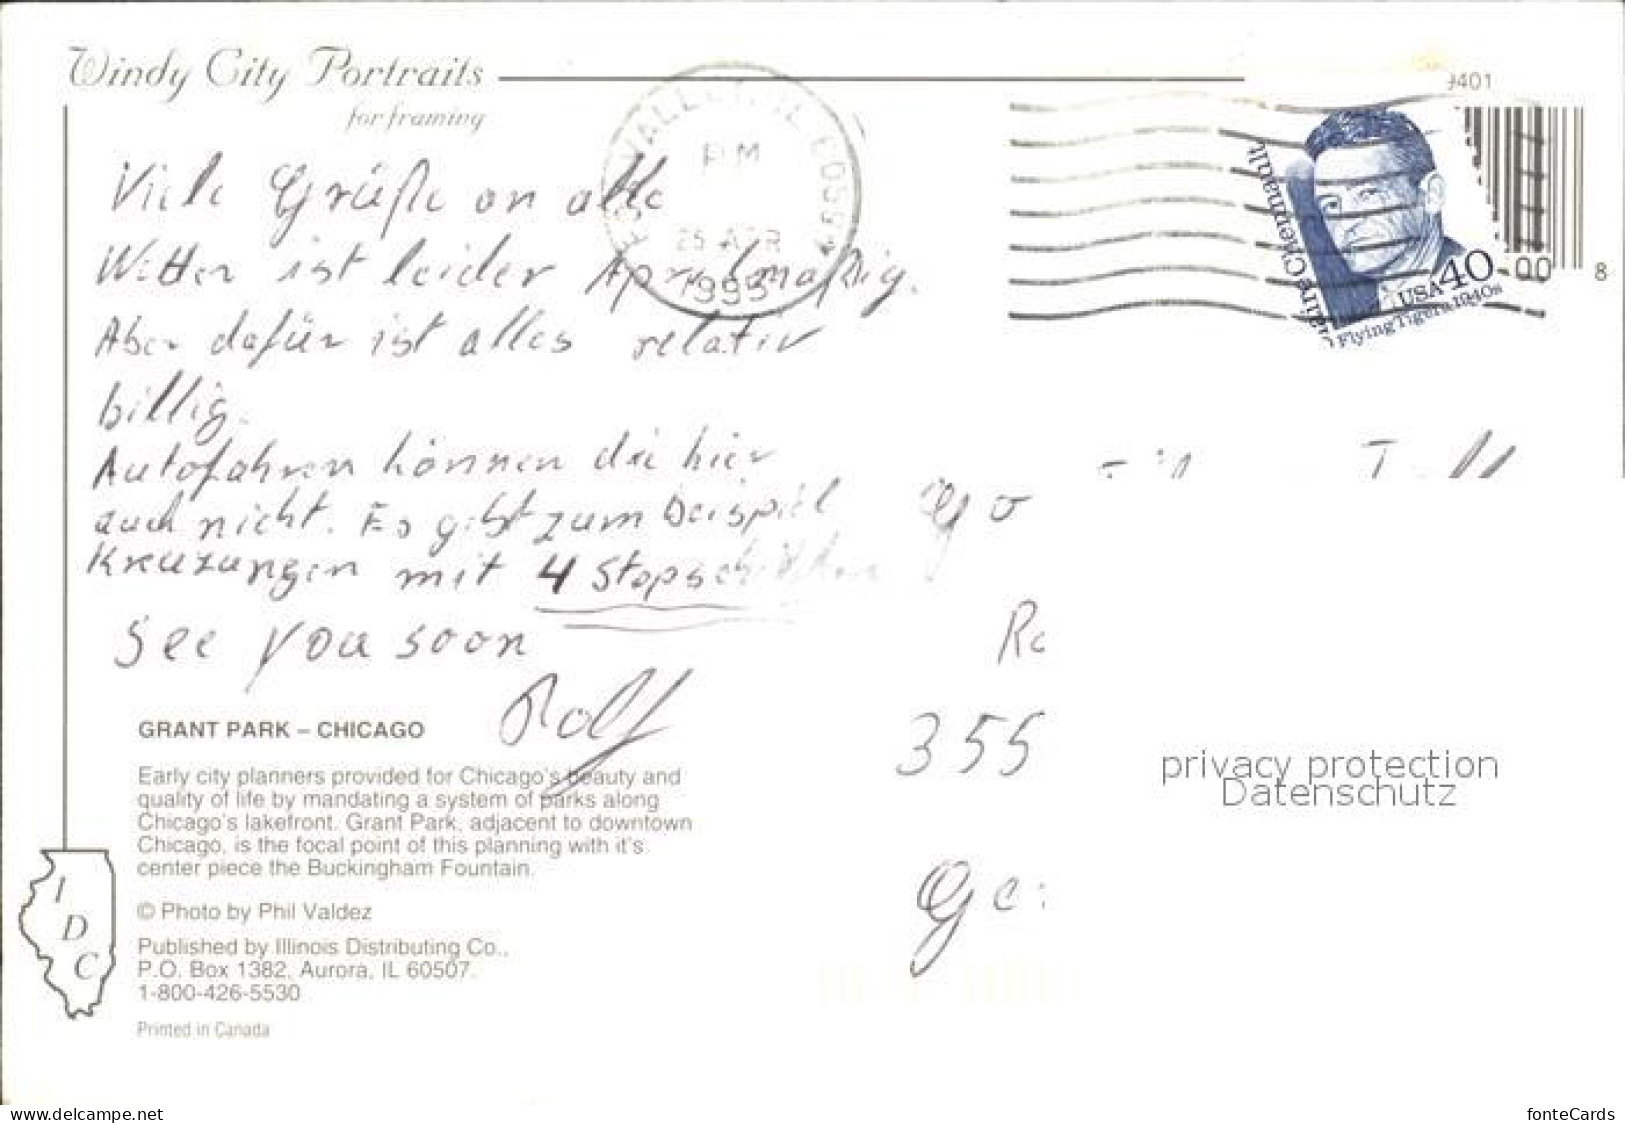 Windy City Portraits
for framing
9401
VALLEY, IL
PM
25 APR
1995
Claire Chennault
USA 40
Flying Tigers, 1940s
00
8
Viele Grüße an alle
Wetter ist leider Aprilmäßig.
Aber dafür ist alles relativ
billig.
Autofahren können die hier
auch nicht. Es gibt zum Beispiel
Kreuzungen mit 4 Stopschildern
See you soon
Rolf
355
GRANT PARK – CHICAGO
Early city planners provided for Chicago's beauty and
quality of life by mandating a system of parks along
Chicago's lakefront. Grant Park, adjacent to downtown
Chicago, is the focal point of this planning with it's
center piece the Buckingham Fountain.
© Photo by Phil Valdez
Published by Illinois Distributing Co.,
P.O. Box 1382, Aurora, IL 60507.
1-800-426-5530
Printed in Canada
I
D
C
privacy protection
Datenschutz
www.delcampe.net
fonteCards